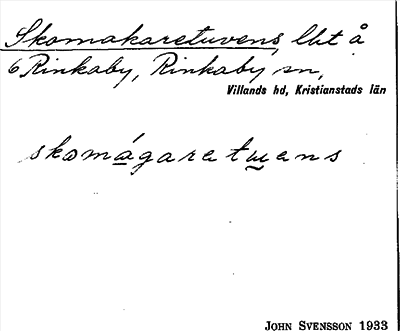 Skomakaretuvens, lht å
6 Rinkaby, Rinkaby sn,
Villands hd, Kristianstads län
skomágaretwens
JOHN SVENSSON 1933